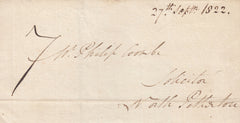 27th Septr. 1822.
7
Mr. Philip Coombe
Solicitor
North Petherton